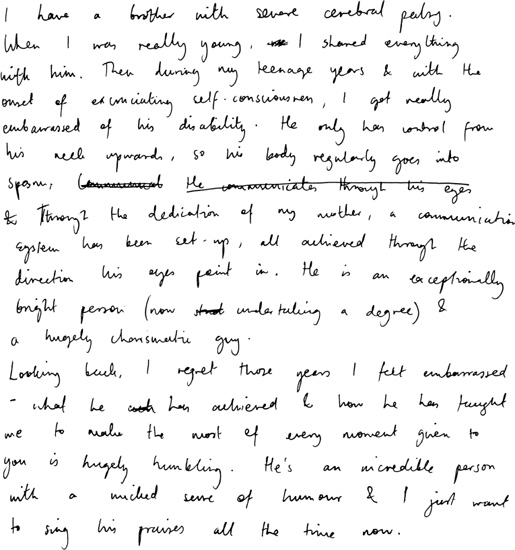 I have a brother with severe cerebral palsy.
When I was really young, I shared everything
with him. Then during my teenage years & with the
onset of excruciating self-consciousness, I got really
embarrassed of his disability. He only has control from
his neck upwards, so his body regularly goes into
spasm, He communicates through his eyes
& Through the dedication of my mother, a communication
system has been set-up, all achieved through the
direction his eyes point in. He is an exceptionally
bright person (now undertaking a degree) &
a hugely charismatic guy.
Looking back, I regret those years I felt embarrassed
- what he has achieved & how he has taught
me to make the most of every moment given to
you is hugely humbling. He's an incredible person
with a wicked sense of humour & I just want
to sing his praises all the time now.